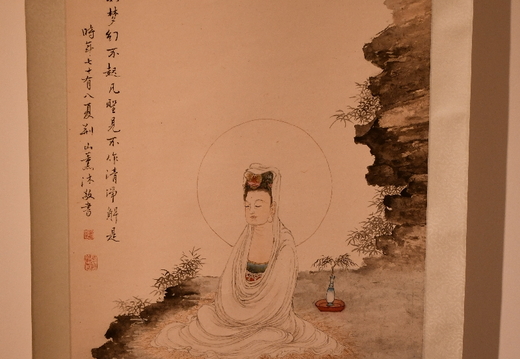 夢幻不起凡聖見不作清淨解是
時年七十有八夏荊山薰沐敬書